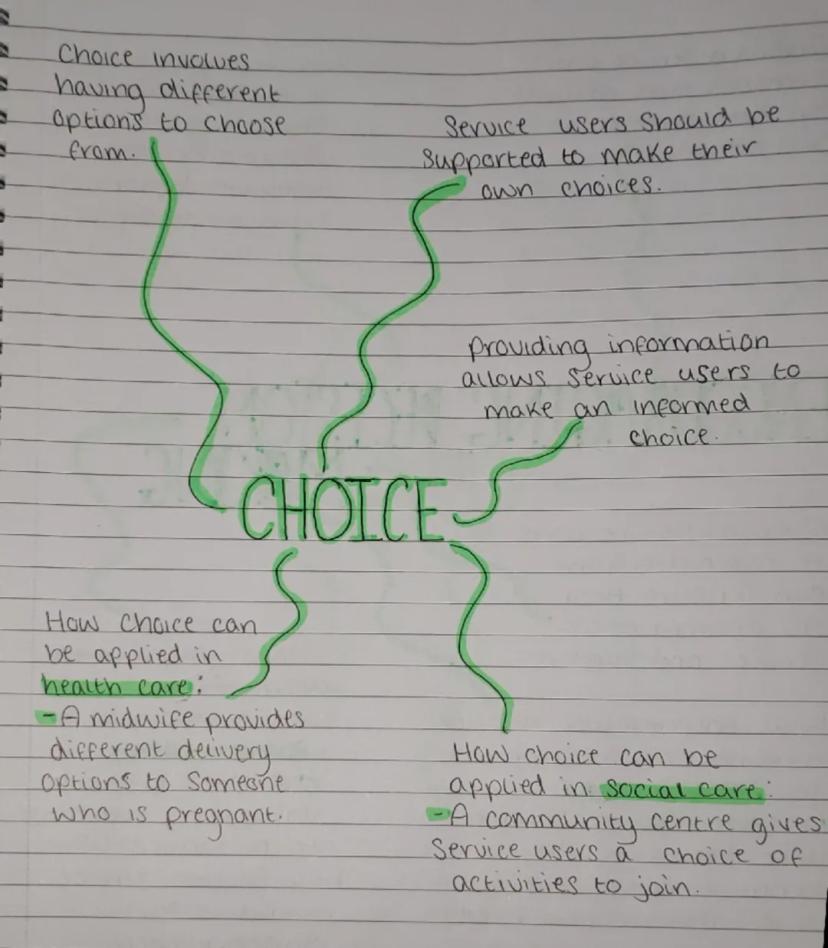 Choice involves
having different
options to choose
from.
Service users should be
supported to make their
own choices.
providing information
allows service users to
make an informed
choice.
CHOICE
How choice can
be applied in
health care:
- A midwife provides
different delivery
options to someone
who is pregnant.
How choice can be
applied in social care:
- A community centre gives
service users a choice of
activities to join.